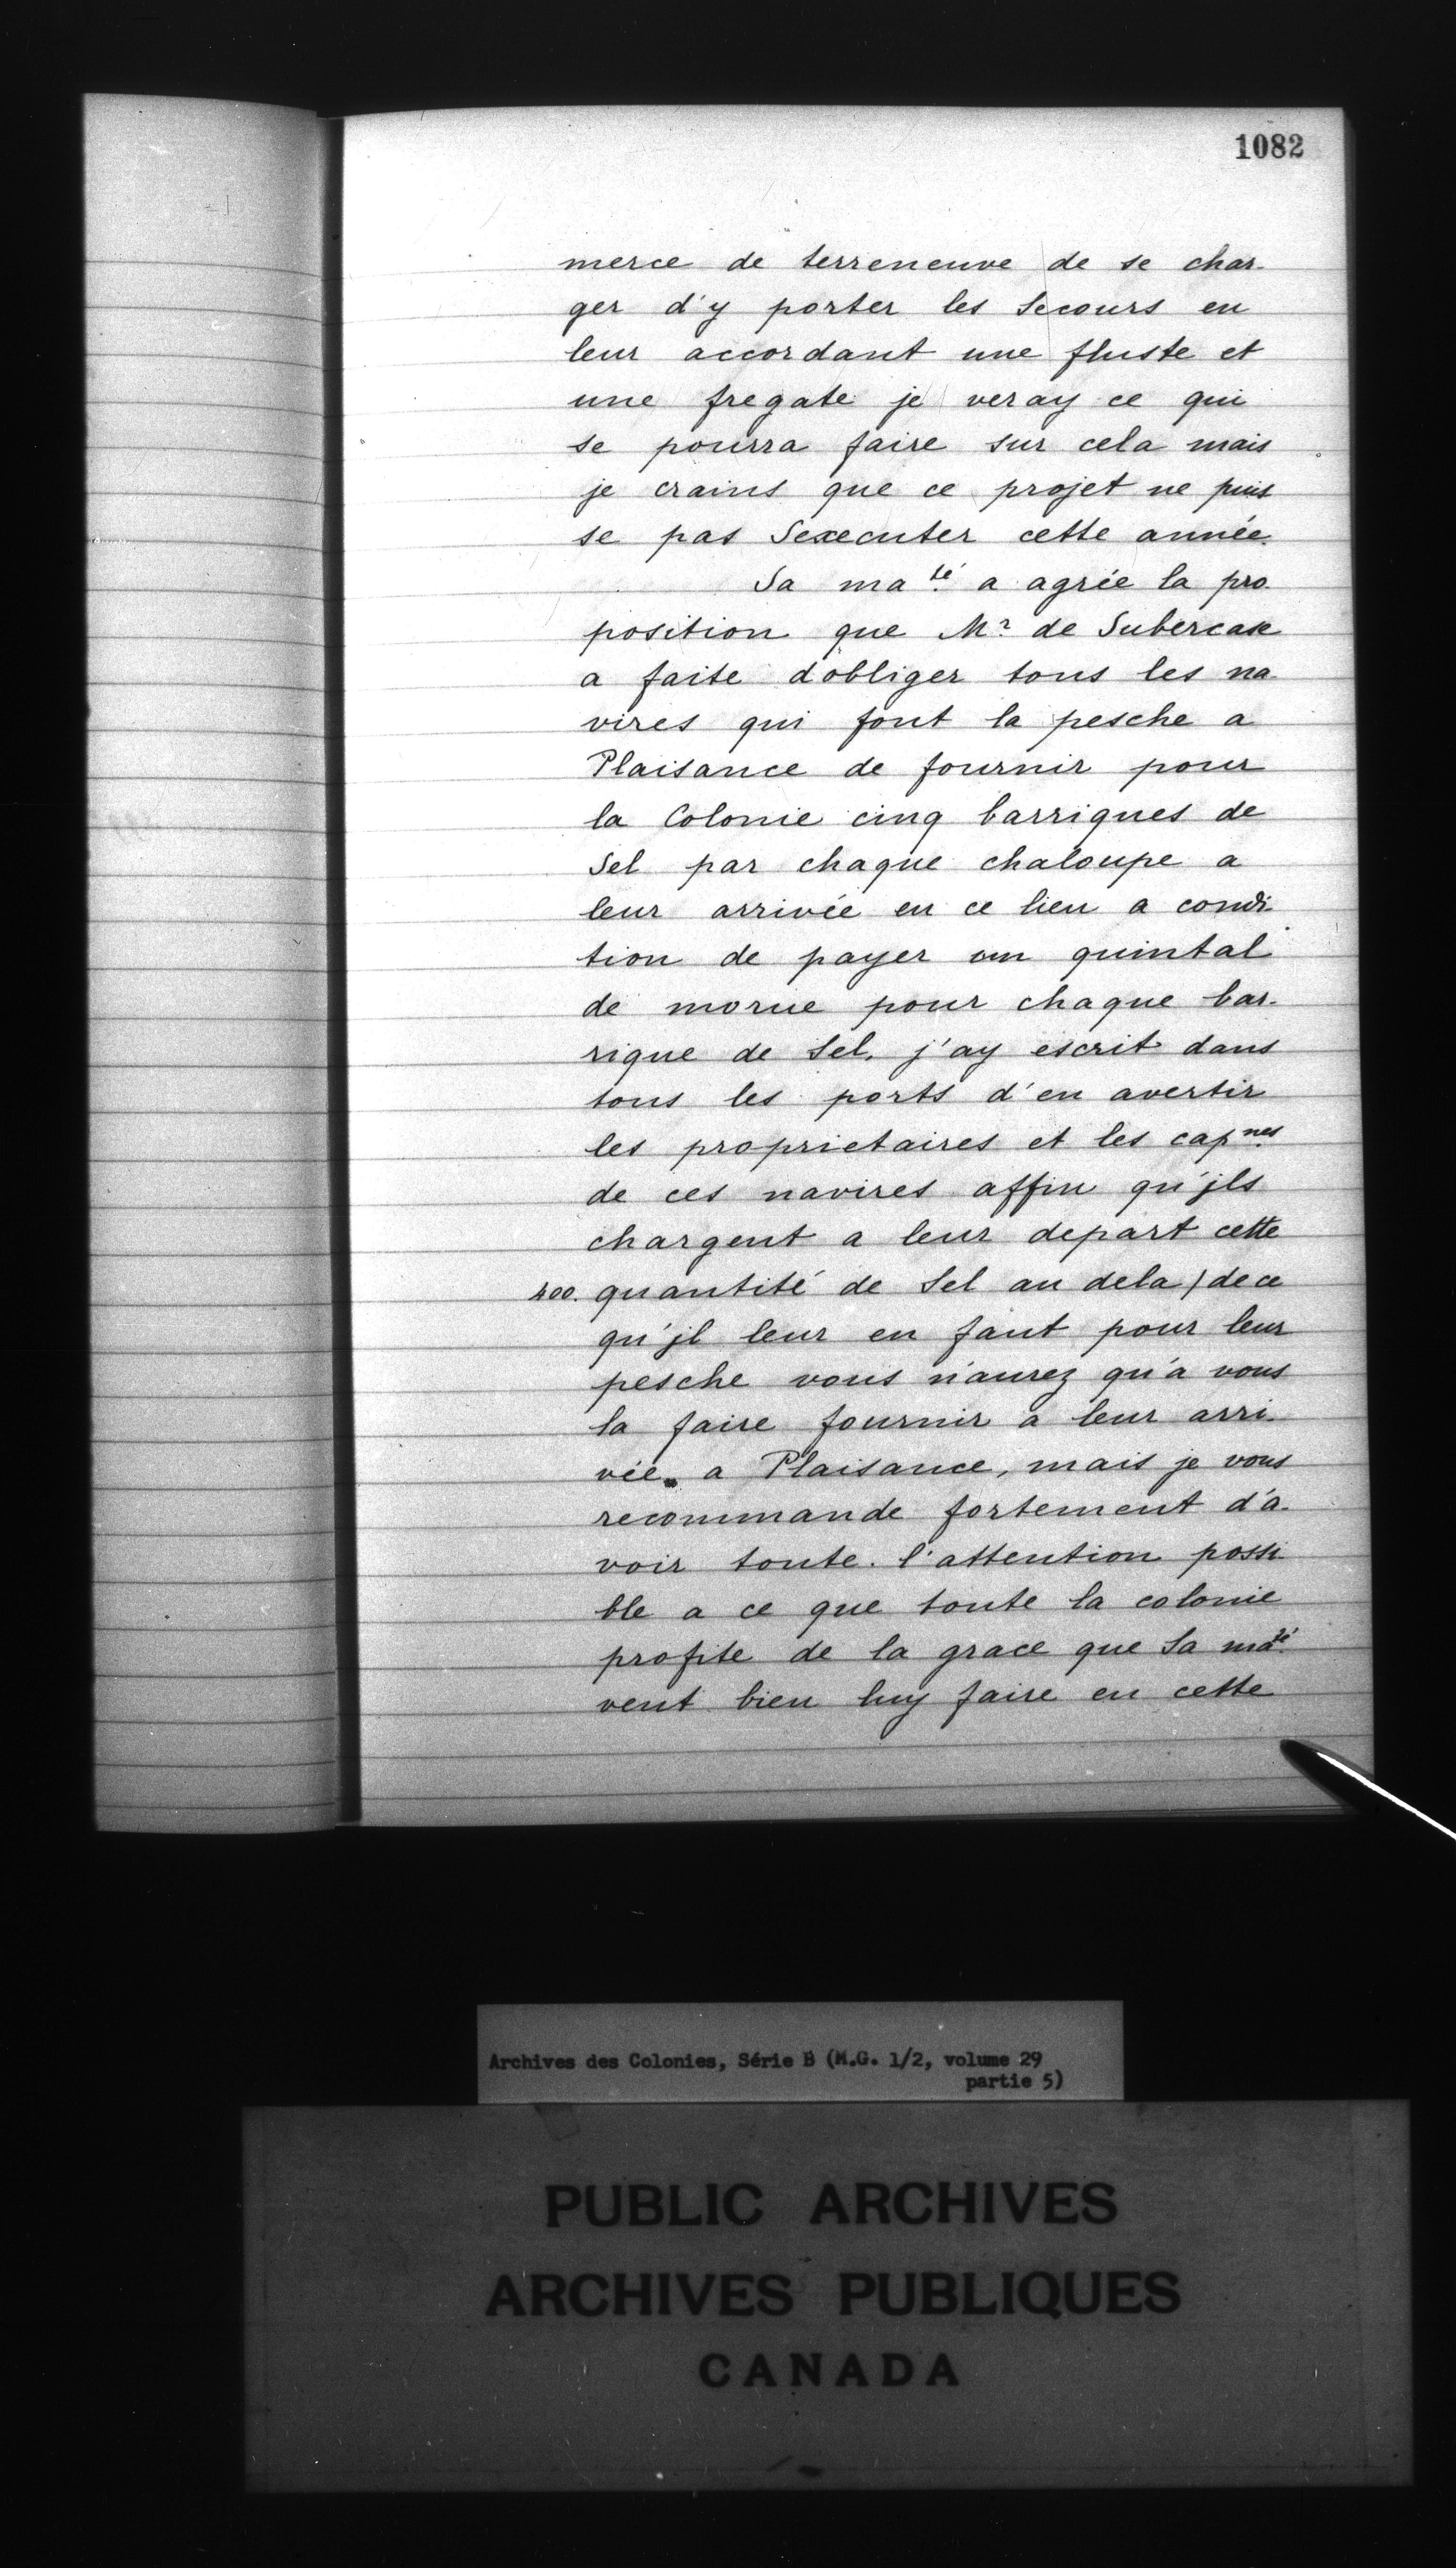 1082
merce de terreneuve de se char-
ger d'y porter les Secours en
leur accordant une fluste et
une fregate je veray ce qui
se pourra faire sur cela mais
je crains que ce projet ne puis
se pas Sexecuter cette année.
Sa ma.té a agrée la pro-
position que Mr. de Subercase
a faite dobliger tous les na-
vires qui font la pesche a
Plaisance de fournir pour
la Colonie cinq barriques de
Sel par chaque chaloupe a
leur arrivée en ce lieu a condi-
tion de payer un quintal
de morue pour chaque bar-
rique de Sel. j'ay escrit dans
tous les ports d'en avertir
les proprietaires et les cap.nes
de ces navires affin qu'jls
chargent a leur depart cette
400. quantité de Sel au dela / de ce
qu'jl leur en faut pour leur
pesche vous n'aurez qu'a vous
la faire fournir a leur arri-
vée. a Plaisance, mais je vous
recommande fortement d'a-
voir toute l'attention possi-
ble a ce que toute la colonie
profite de la grace que Sa ma.té
veut bien luy faire en cette
Archives des Colonies, Série B (M.G. 1/2, volume 29
partie 5)
PUBLIC ARCHIVES
ARCHIVES PUBLIQUES
CANADA